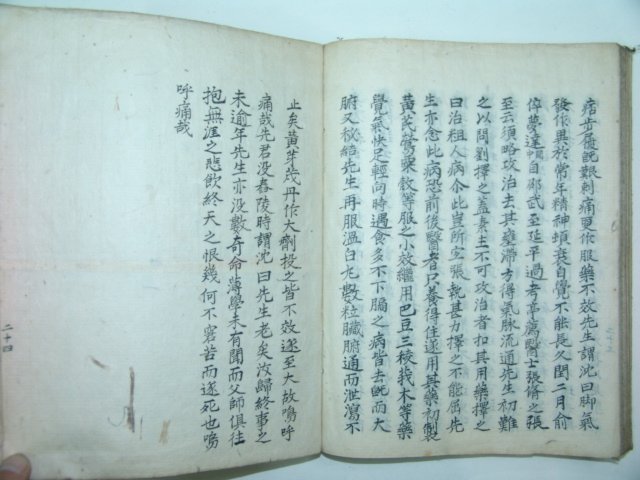 痞步履旣艱刺痛更作服藥不效先生謂沈曰脚氣
發作異於常年精神頓衰自覺不能長久閏二月俞
倅夢達自邵武至延平過考亭薦醫士張脩之張
至云須略攻治去其壅滯方得氣脉流通先生初難
之以問劉擇之蓋素主不可攻治者扣其用藥擇之
曰治粗人病尒此豈所宜張執甚力擇之不能屈先
生亦念此病恐前後醫者只養得住遂用其藥初製
黃芪鶯粟殼等服之小效繼用巴豆三稜莪木等藥
覺氣快足輕向時遇食多不下膈之病皆去旣而大
腑又秘結先生再服溫白丸數粒臟腑通而泄瀉不
止矣黃芽歲丹作大劑投之皆不效遂至大故嗚呼
痛哉先君沒舂陵時謂沈曰先生老矣汝歸終事之
未逾年先生亦沒數奇命薄學未有聞而父師俱往
抱無涯之悲飮終天之恨幾何不窘苦而遂死也嗚
呼痛哉
二十四